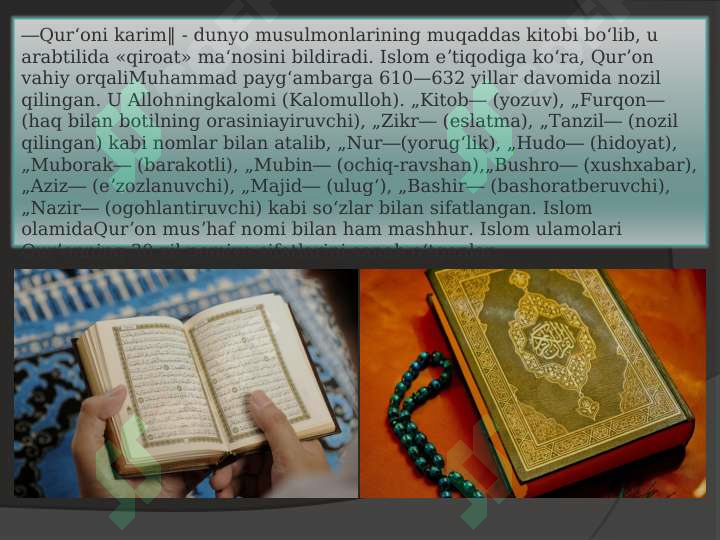 ―Qurʻoni karim‖ - dunyo musulmonlarining muqaddas kitobi boʻlib, u
arabtilida «qiroat» maʻnosini bildiradi. Islom eʼtiqodiga koʻra, Qurʼon
vahiy orqaliMuhammad paygʻambarga 610—632 yillar davomida nozil
qilingan. U Allohningkalomi (Kalomulloh). „Kitob― (yozuv), „Furqon―
(haq bilan botilning orasiniayiruvchi), „Zikr― (eslatma), „Tanzil― (nozil
qilingan) kabi nomlar bilan atalib, „Nur―(yorugʻlik), „Hudo― (hidoyat),
„Muborak― (barakotli), „Mubin― (ochiq-ravshan),„Bushro― (xushxabar),
„Aziz― (eʼzozlanuvchi), „Majid― (ulugʻ), „Bashir― (bashoratberuvchi),
„Nazir― (ogohlantiruvchi) kabi soʻzlar bilan sifatlangan. Islom
olamidaQurʼon musʼhaf nomi bilan ham mashhur. Islom ulamolari